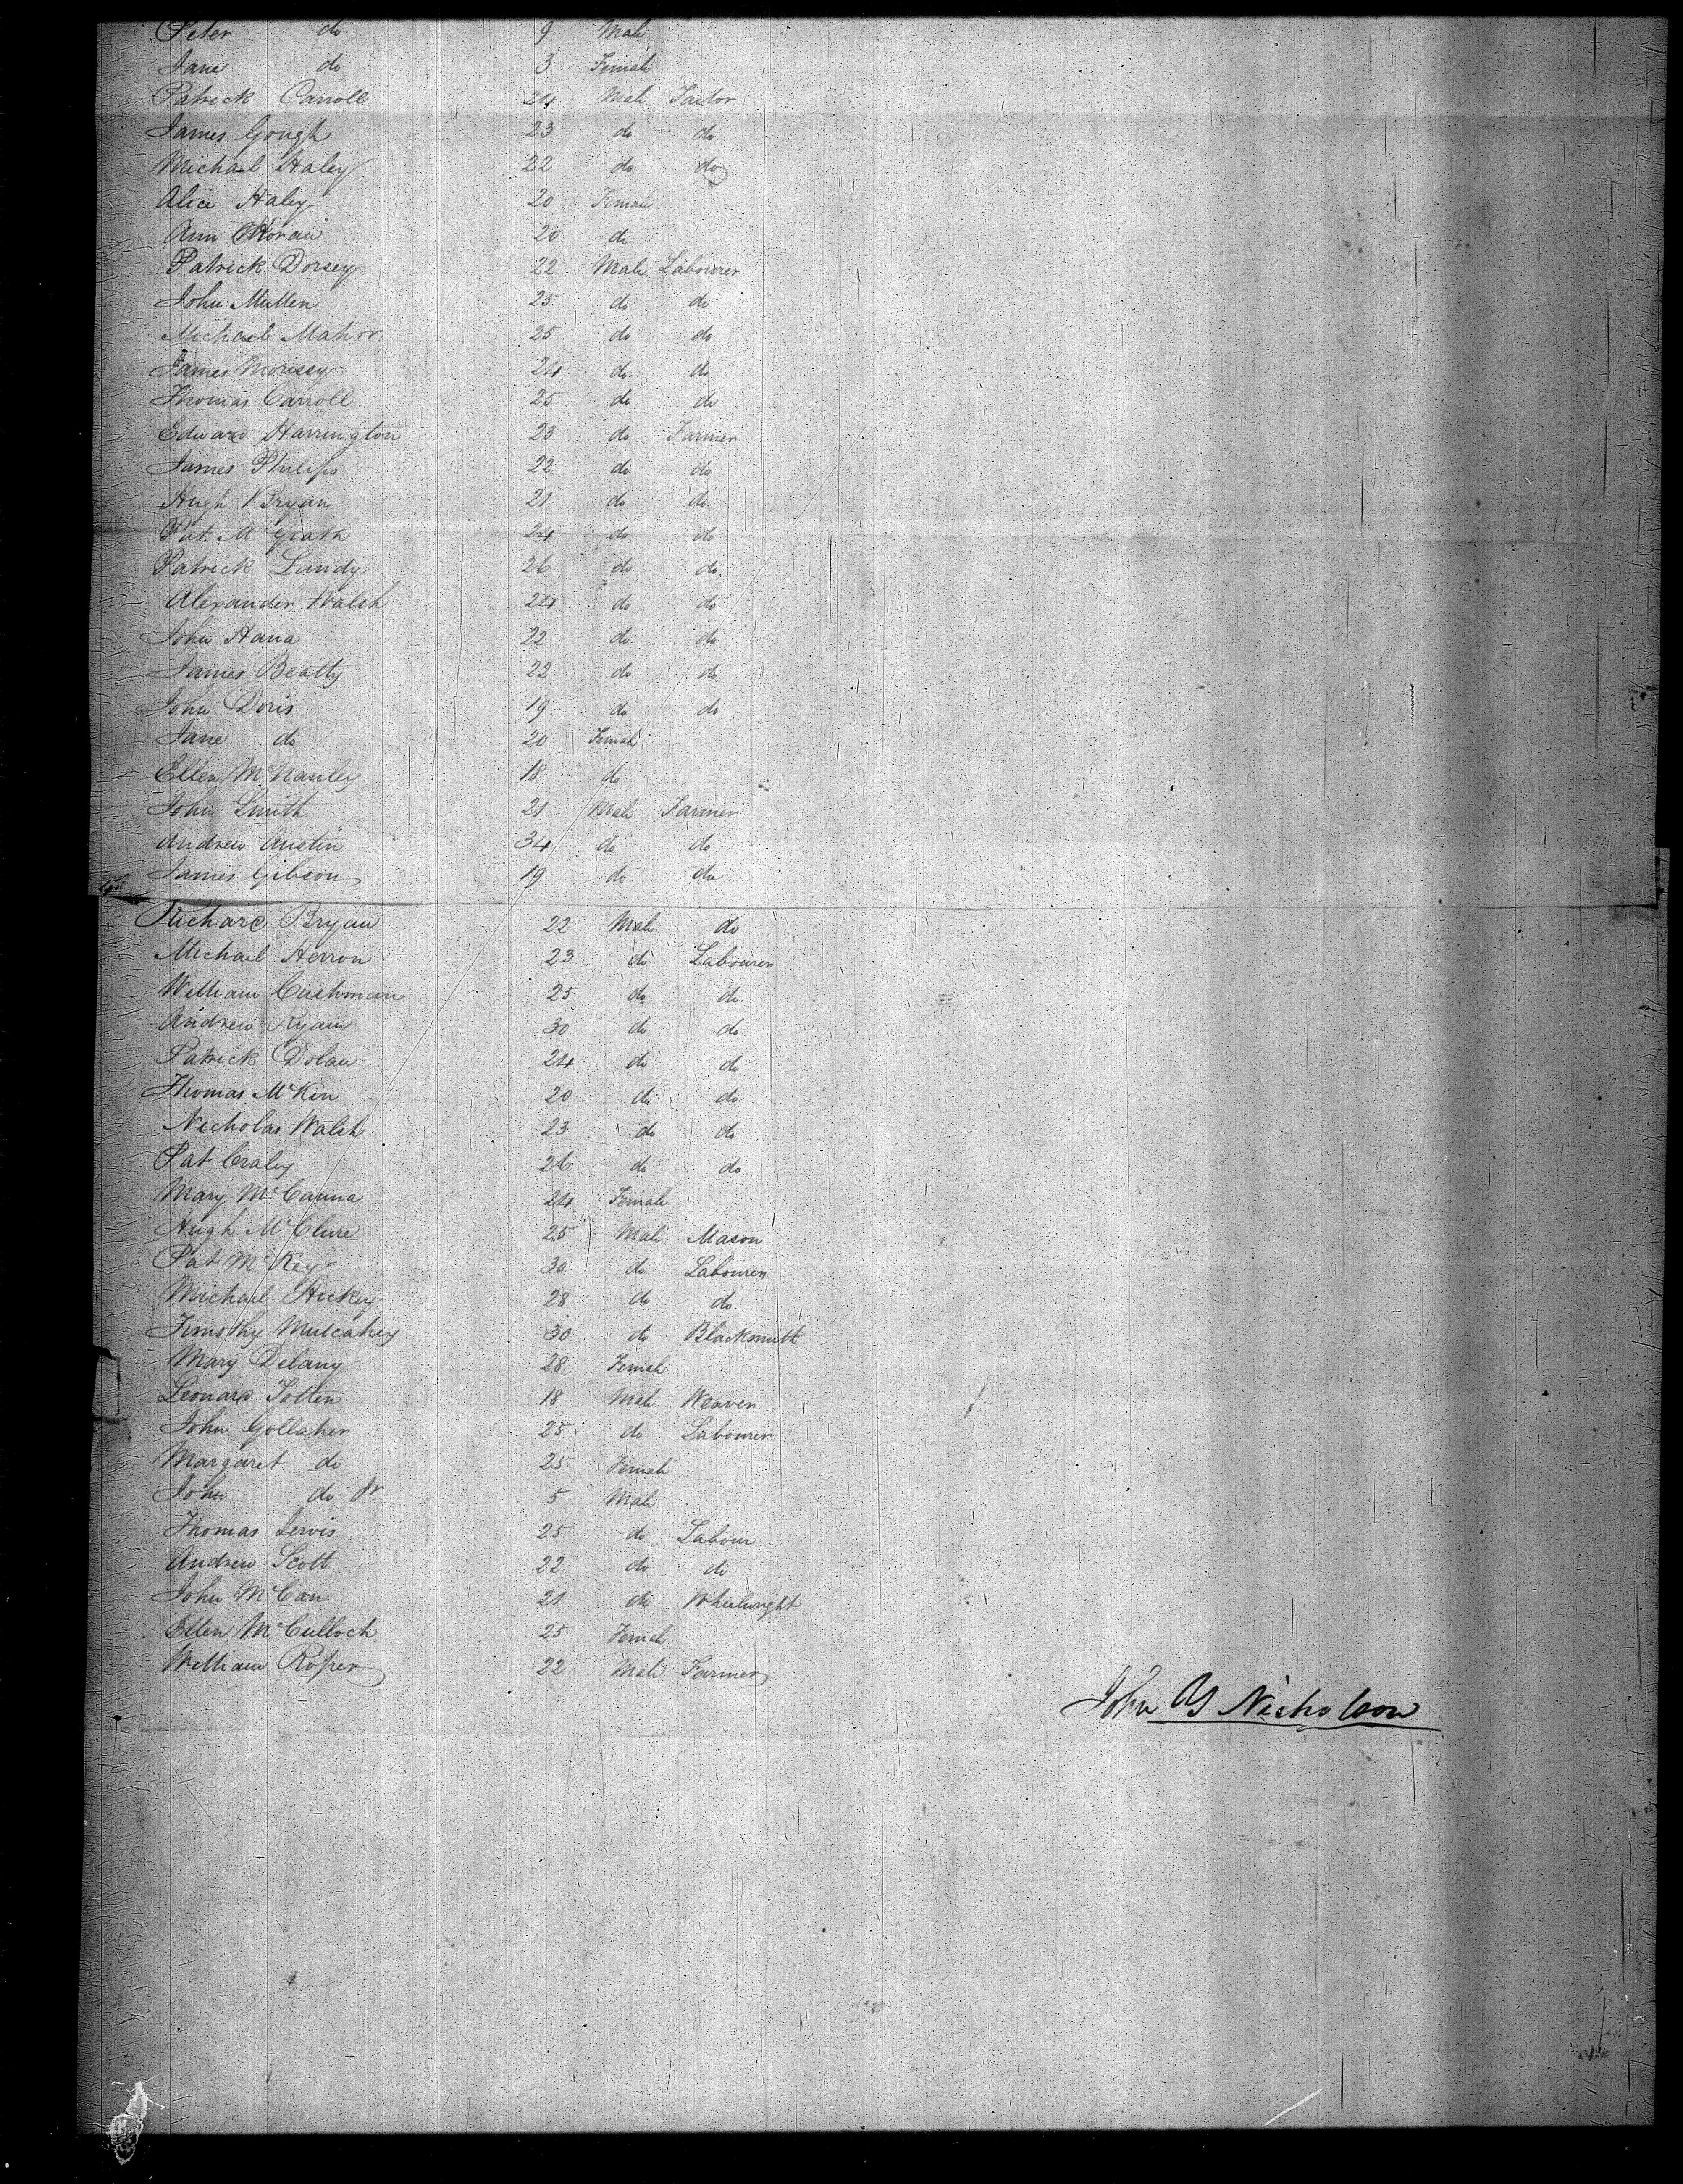 Peter do 9 Male
Jane do 3 Female
Patrick Carroll 24 Male Tailor
James Gough 23 do do
Michael Haley 22 do do
Alice Haley 20 Female
Ann 20 do
Patrick Dorsey 22 Male Labourer
John Mullen 25 do do
Michael Mahor 25 do do
James Morissy 24 do do
Thomas Carroll 25 do do
Edward Harrington 23 do Farmer
James Philips 22 do do
Hugh Bryan 21 do do
Pat. McGrath 24 do do
Patrick Lundy 26 do do
Alexander Walsh 24 do do
John Hana 22 do do
James Beatty 22 do do
John Doris 19 do do
Jane do 20 Female
Ellen 18 do
John Smith 21 Male Farmer
Andrew Austin 34 do do
James Gibson 19 do do
Richard Bryan 22 Male do
Michael Herron 23 do Labourer
William Cushman 25 do do
Andrew Ryan 30 do do
Patrick Dolan 24 do do
Thomas McKin 20 do do
Nicholas Walsh 23 do do
Pat Craley 26 do do
Mary McCanna 24 Female
Hugh McClure 25 Male Mason
Pat McKey 30 do Labourer
Michael Hickey 28 do do
Timothy Mulcahey 30 do Blacksmith
Mary Delany 28 Female
Leonard Totten 18 Male Weaver
John Gollaher 25 do Labourer
Margaret do 25 Female
John do Jr 5 Male
Thomas Jervis 25 do Labour
Andrew Scott 22 do do
John McCan 21 do Wheelwright
Ellen McCulloch 25 Female
William Roper 22 Male Farmer
John Nicholson